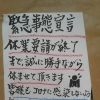 緊急事態宣言
休業要請が終了
まで誠に勝手ながら
休ませて頂きます
皆様もコロナに感染しない